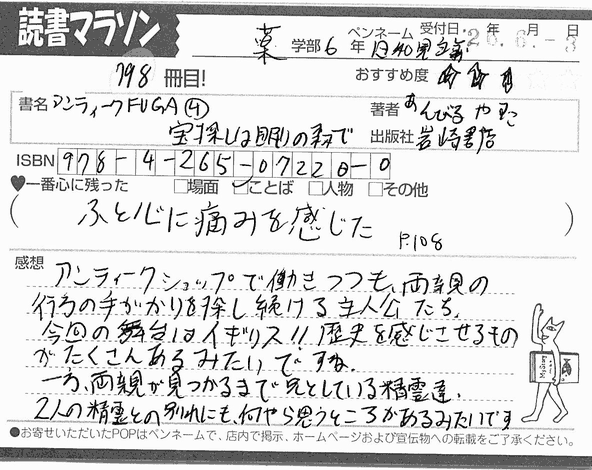 読書マラソン
薬 学部 6 年 ペンネーム 日和見主義 受付日: 26年 6月 -3日
798 冊目! おすすめ度
書名 アンティークFUGA ④ 著者 あんびるやすこ
宝探しは眠りの森で 出版社 岩崎書店
ISBN 978-4-265-07220-0
♥一番心に残った □場面 ☑ことば □人物 □その他
(ふと心に痛みを感じた P.108)
感想 アンティークショップで働きつつも、両親の
行方の手がかりを探し続ける主人公たち。
今回の舞台はイギリス!! 歴史を感じさせるもの
がたくさんあるみたいですね。
一方、両親が見つかるまで兄としている精霊達。
2人の精霊との別れにも、何やら思うところがあるみたいです
●お寄せいただいたPOPはペンネームで、店内で掲示、ホームページおよび宣伝物への転載をご了承ください。